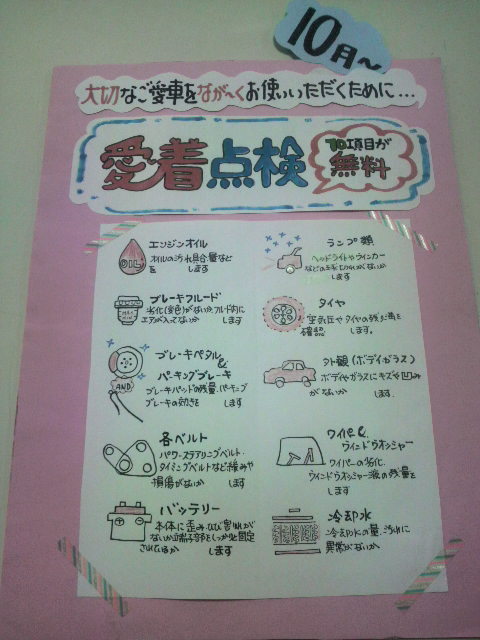 10月〜
大切なご愛車をなが〜くお使いいただくために...
愛着点検
10項目が
無料
エンジンオイル
オイルの汚れ具合、量など
を します
ブレーキフルード
劣化(変色)がないか、フルード内に
エアが入ってないか します
ブレーキペダル&
パーキングブレーキ
ブレーキパッドの残量、パーキング
ブレーキの効きを します
各ベルト
パワーステアリングベルト・
タイミングベルトなど緩みや
損傷がないか します
バッテリー
本体に歪み、ひび割れが
ないか、端子部をしっかりと固定
されているか します
ランプ類
ヘッドライトやウインカー
などの玉切れがないか
します
タイヤ
空気圧やタイヤの残り溝を
確認 します。
外観(ボディ・ガラス)
ボディやガラスにキズや凹み
がないか します
ワイパー&
ウィンドウォッシャー
ワイパーの劣化、
ウィンドウォッシャー液の残量を
します
冷却水
冷却水の量、汚れに
異常がないか
OIL
AND